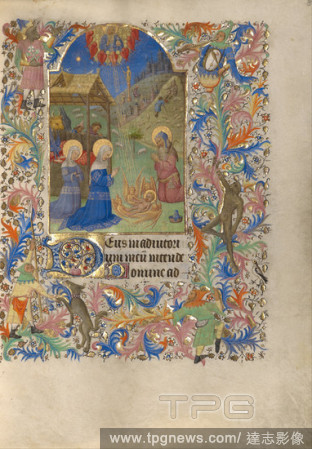 Eus in adiutori
um meū intende
Domine ad
TPG
www.tpgnews.com/達志影像